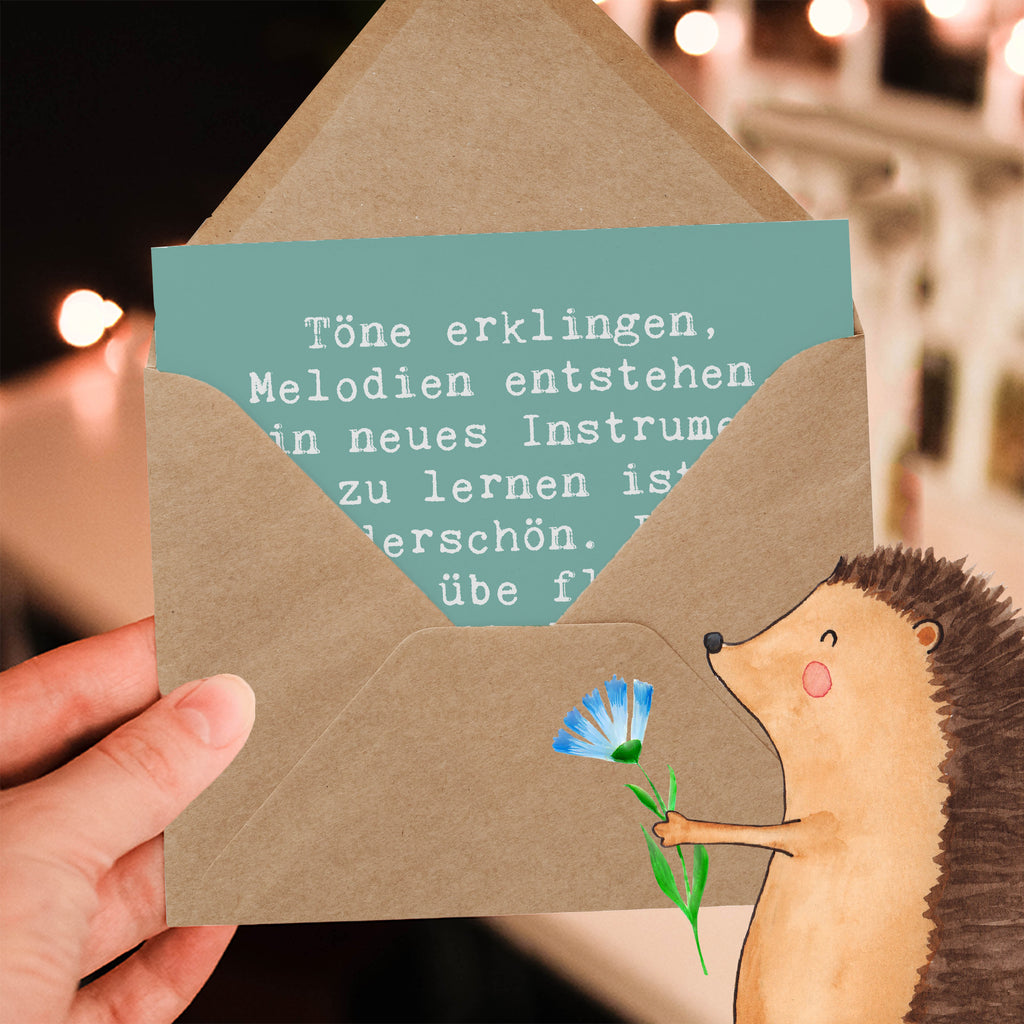 Töne erklingen,
Melodien entstehen
in neues Instrume
zu lernen ist
derschön.
übe fl